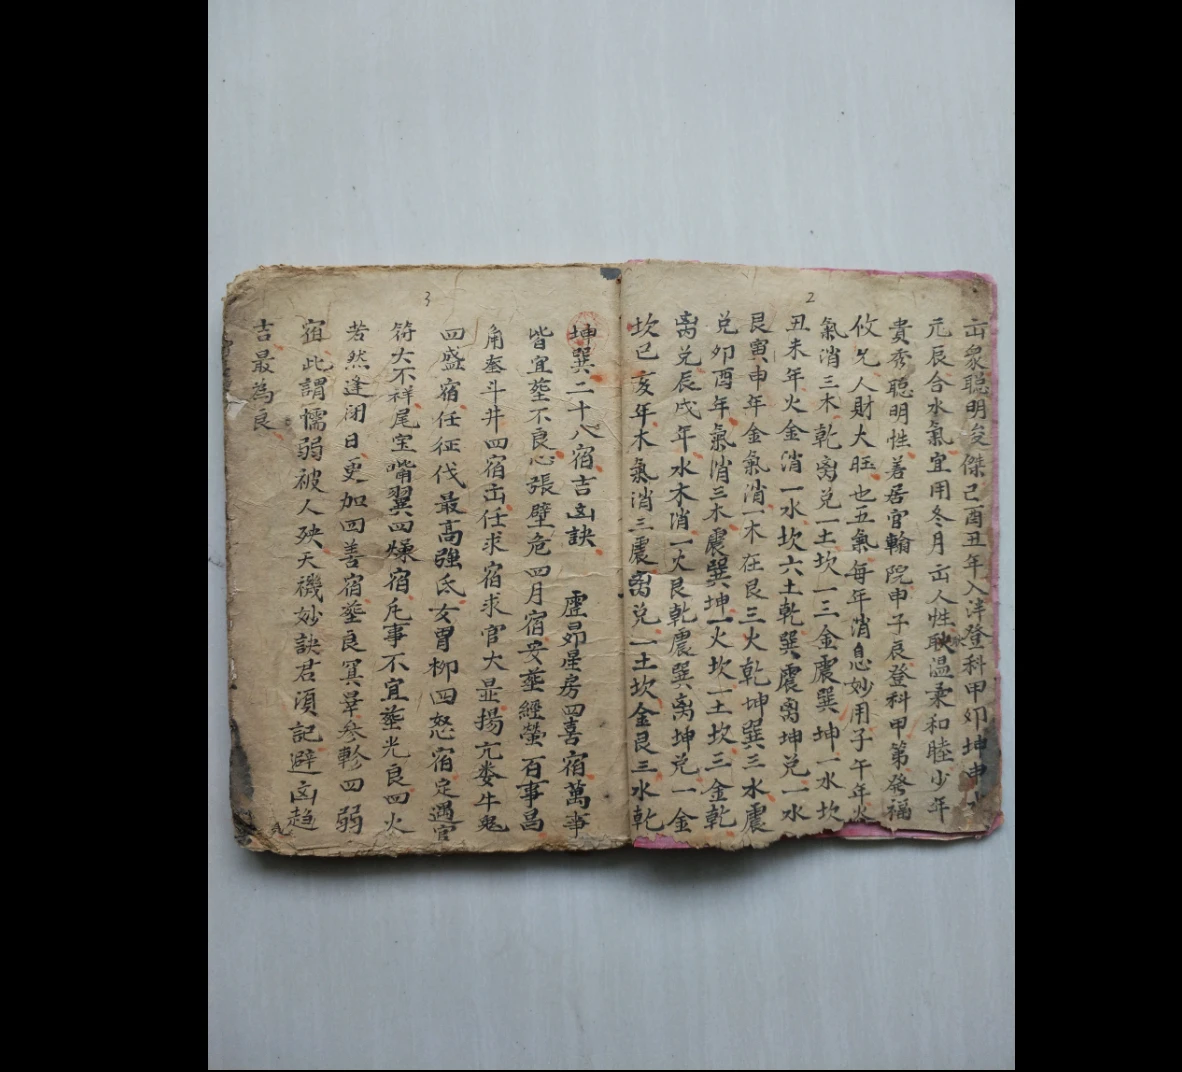 2
出衆聰明俊傑己酉丑年入泮登科甲卯坤申
元辰合水氣宜用冬月出人性耿溫柔和睦少年
貴秀聰明性善居官翰院申子辰登科甲第發福
攸久人財大旺也五氣每年消息妙用子午年火
氣消三木乾离兑一土坎一三金震巽坤一水坎
丑未年火金消一水坎六土乾巽震离坤兑一水
艮寅申年金氣消一木在艮三火乾坤巽三水震
兑卯酉年氣消三木震巽坤一火坎一土坎三金乾
离兑辰戌年水木消一火艮乾震巽离坤兑一金
坎己亥年木氣消三震离兑一土坎金艮三水乾
3
坤巽二十八宿吉凶訣 虚昴星房四喜宿萬事
皆宜塟不良心張壁危四月宿安塟經營百事昌
角奎斗井四宿出任求宿求官大显揚亢娄牛鬼
四盛宿任征伐最高強氐女胃柳四怒宿定遇官
符大不祥尾室嘴翼四燥宿凡事不宜塟光良四火
若然逢闭日更加四善宿塟良箕畢参軫四弱
宿此謂懦弱被人殃天機妙訣君須記避凶趋
吉最為良